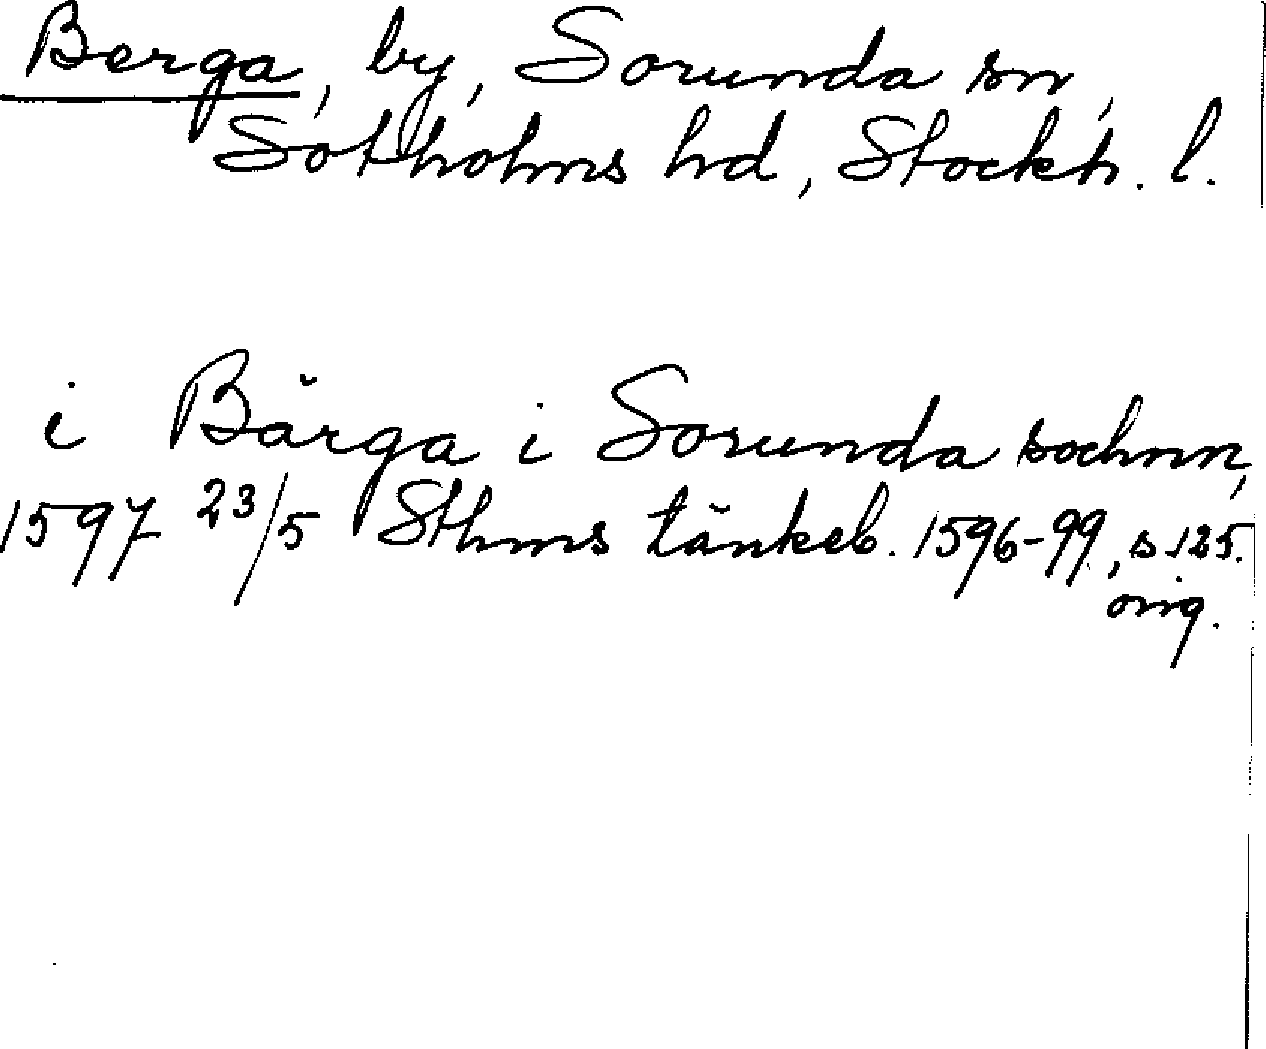 Berga, by, Sorunda sn,
Sotholms hd, Stockh. l.
i Bärga i Sorunda sochnn,
1597 23/5 Sthms tänkeb. 1596-99, s 125.
orig.